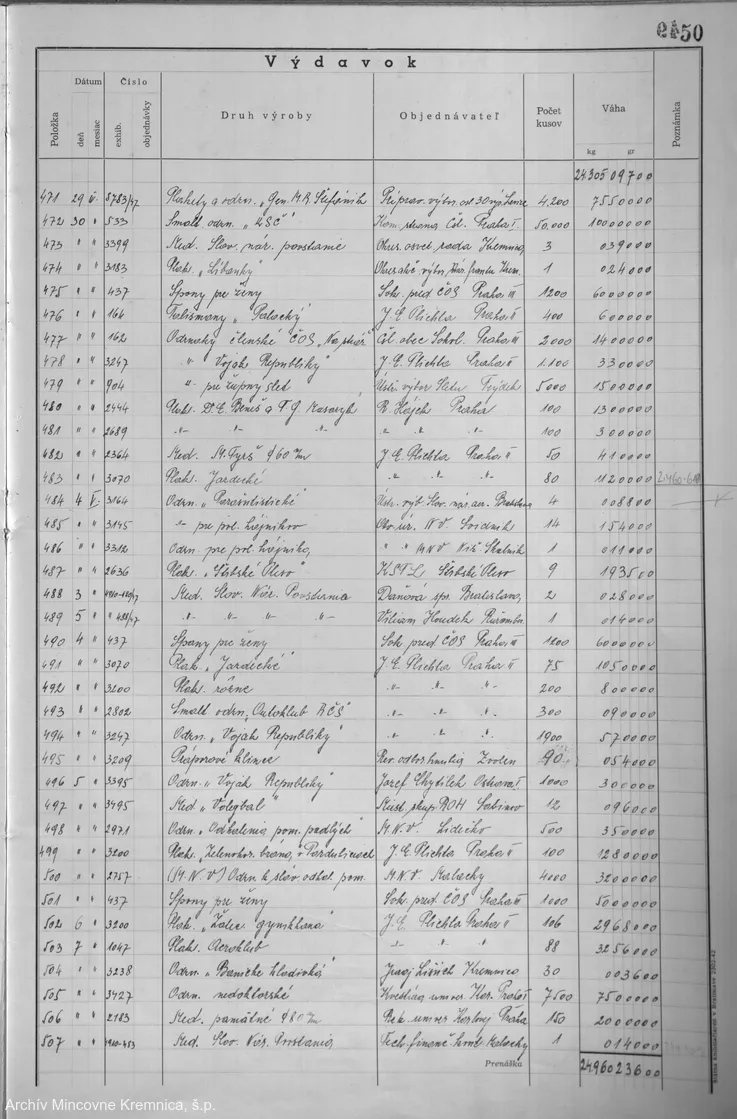 50
Výdavok
Položka Dátum deň mesiac Číslo exhib. objednávky Druh výroby Objednávateľ Počet kusov Váha kg gr Poznámka
24305 09700
471 29 V. 5783/47 Plakety a odzn. „Gen. M.R. Štefánik Príprav. výbor. osl. 30 výr. 4.200 7550000
472 30 " 533 Smalt odzn. "KSČ" Kom. strana Čsl. Praha I. 50.000 10000000
473 " " 3399 Med. Slov. nár. povstanie Okres. osvet. rada Kremnica 3 039000
474 " " 3183 Plak. „Líbanky" Okr. akč. výbor, Nár. frontu Krem. 1 024000
475 " " 437 Spony pre ženy Sok. pred. ČOS Praha III 1200 6000000
476 " " 164 Talismany „Palacký" J.E. Plichta Praha II 400 600000
477 " " 162 Odznaky členské ČOS „Na stráž" Čsl. obec Sokol. Praha III 2000 1400000
478 " " 3247 " „Vojak Republiky" J.E. Plichta Praha II 1.100 330000
479 " " 904 -"- pre župný slet Ústr. výbor Frýdek 5000 1500000
480 " " 2444 Plak. Dr. E. Beneš a T.G. Masaryk R. Hájek Praha 100 1300000
481 " " 2689 -"- -"- -"- " " " 100 300000
482 " " 2364 Med. M. Tyrš ϕ 60 m/m J.E. Plichta Praha II 50 410000
483 " " 3070 Plak. Jazdecké -"- -"- -"- 80 1120000
484 4 V. 3164 Odzn. „Parašutistické" Ústr. výb. Slov. nár. aer. Bratislava 4 008800
485 " " 3145 -"- pre pol. hájnikov Obv. úr. NV Svidník 14 154000
486 " " 3312 Odzn. pre pol. hájnika, " " MNV Niž. 1 011000
487 " " 2636 Plak. „Štrbské Pleso" KSTL Štrbské Pleso 9 193500
488 3 " Med. Slov. Nár. Povstania Daňová spr. Bratislava, 2 028000
489 5 " -"- -"- -"- -"- Viliam Houdek Ružomber. 1 014000
490 4 " 437 Spony pre ženy Sok. pred. ČOS Praha III 1200 6000000
491 " " 3070 Plak. „Jazdecké" J.E. Plichta Praha II 75 1050000
492 " " 3200 Plak. rôzne -"- -"- -"- 200 800000
493 " " 2802 Smalt odzn. „Autoklub RČS" -"- -"- -"- 300 090000
494 " " 3247 Odzn. „Vojak Republiky" -"- -"- -"- 1900 570000
495 " " 3209 Práporové klince Zvolen 90 054000
496 5 " 3395 Odzn. „Voják Republiky" Jozef Chytílek Ostrava I. 1000 300000
497 " " 3495 Med „Volejbal" Miest. skup. ROH Sabinov 12 096000
498 " " 2971 Odzn. „Odhalenia pom. padlých" M.N.V. Lidečko 500 350000
499 " " 3200 Plak. Zelenohor. brána, v Pardubiciach J.E. Plichta Praha II 100 1280000
500 " " 2757 (M.N.V.) Odzn. k sláv. odhal. pom. M.N.V. Malacky 4000 3200000
501 " " 437 Spony pre ženy Sok. pred. ČOS Praha III 1000 5000000
502 6 " 3200 Plak. „Žatec gymkhana" J.E. Plichta Praha II 106 2968000
503 7 " 1047 Plak. Aeroklub " " " 88 3256000
504 " " 3238 Odzn. „Banícke kladivká" Juraj Kremnica 30 003600
505 " " 3427 Odzn. medoktorské Kvestúra univer. Kar. Praha I 7500 7500000
506 " " 2183 Med. pamätné ϕ 80 m/m Rek. univer. Karlovy Praha 150 2000000
507 " " Med. Slov. Nár. Povstania Tech. finanč. Malacky 1 014000
Prenáška 24.960 23600
Archív Mincovne Kremnica, š.p.